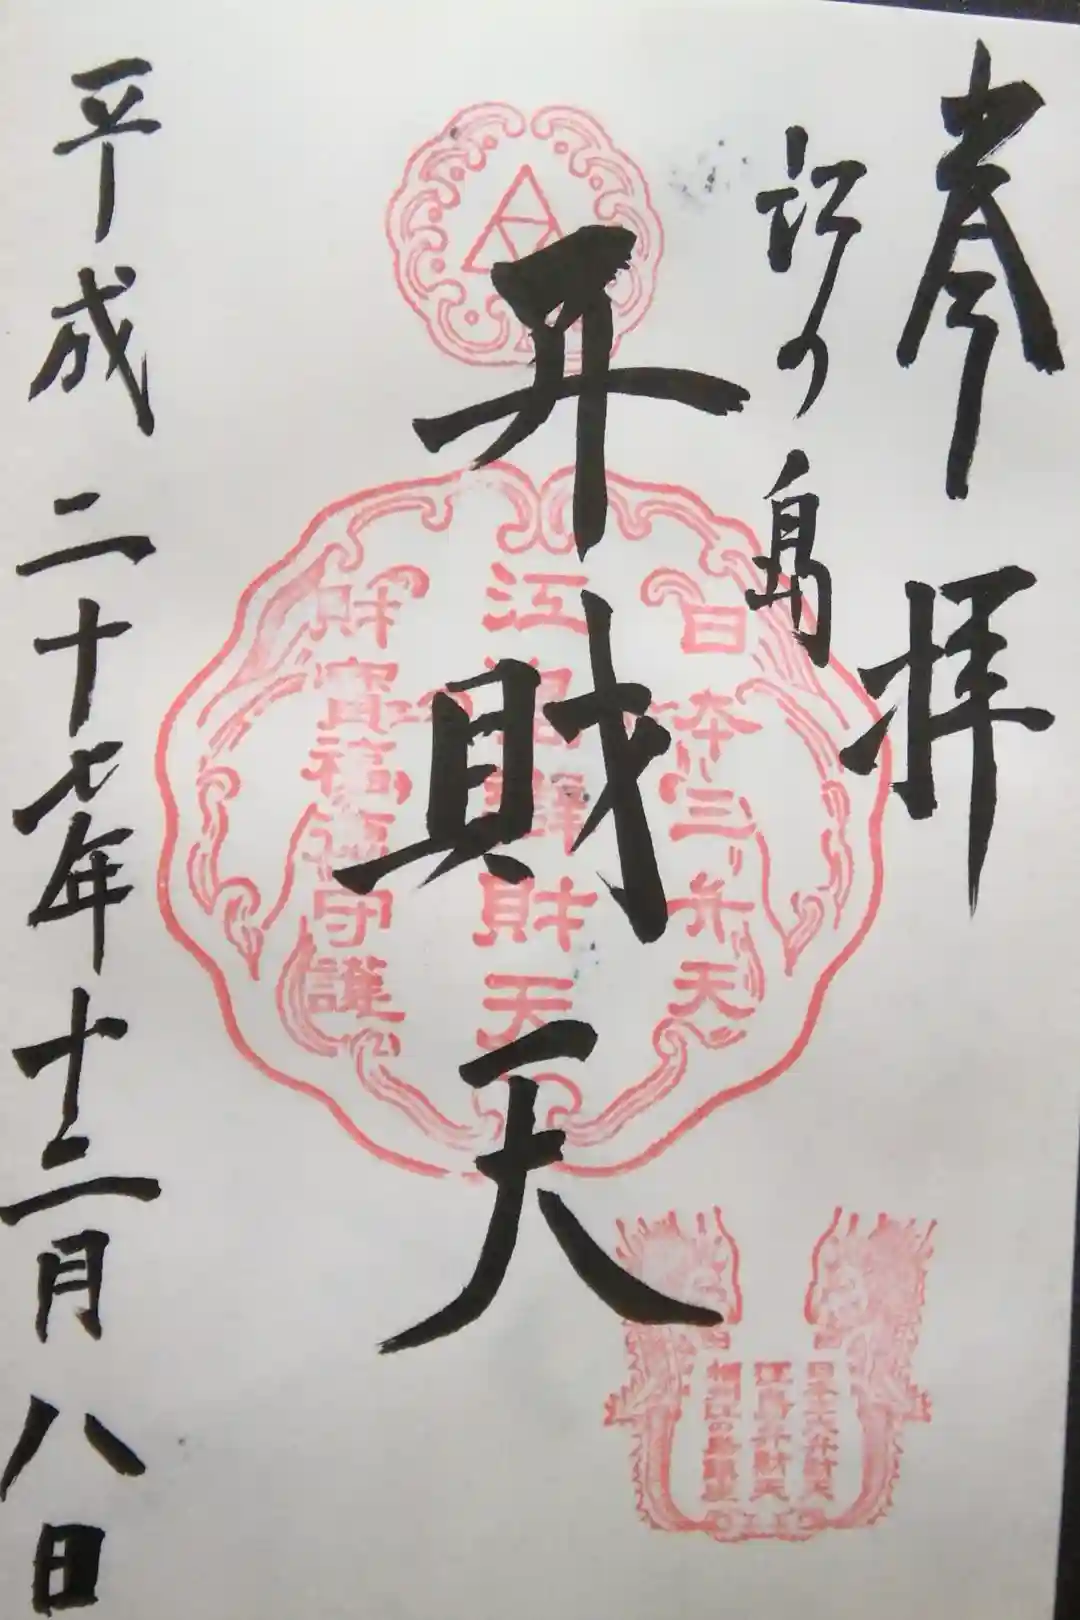 奉拝
江の島
弁財天
平成二十七年十二月八日
日本三弁天
江島辨財天
財寳福徳守護
日本三大弁財天
江島弁財天